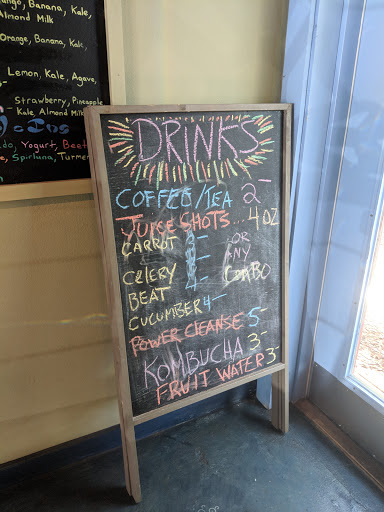 ango, Banana, Kale,
Almond Milk
Orange, Banana, Kale,
Lemon, Kale, Agave,
- Strawberry, Pineapple
Kale, Almond Milk
do, Yogurt, Beet
e, Spirluna, Turmer
DRINKS
COFFEE/TEA 2-
JUICE SHOTS... 4 OZ
CARROT
OR
CELERY
ANY
COMBO
BEAT
CUCUMBER 4-
POWER CLEANSE 5-
KOMBUCHA 3-
FRUIT WATER 3-